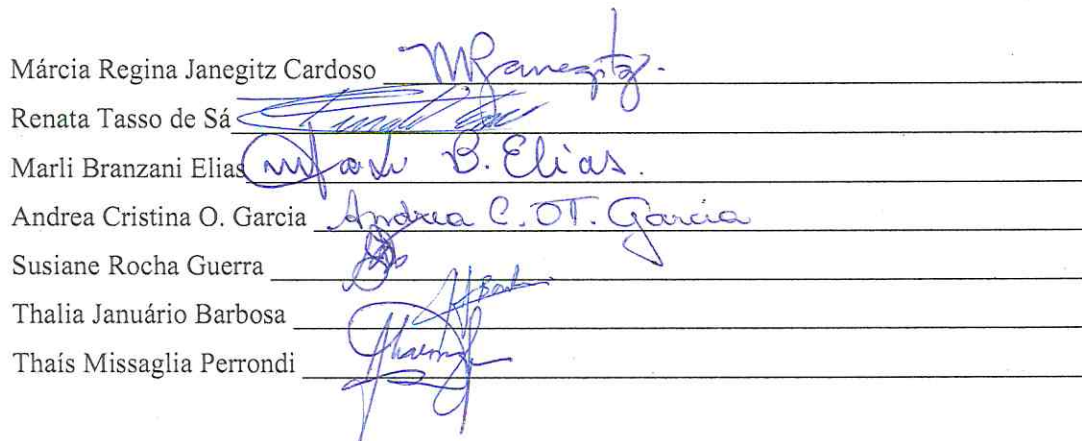 Márcia Regina Janegitz Cardoso MRJanegitz.
Renata Tasso de Sá
Marli Branzani Elias Marli B. Elias.
Andrea Cristina O. Garcia Andrea C. OT. Garcia
Susiane Rocha Guerra
Thalia Januário Barbosa
Thaís Missaglia Perrondi